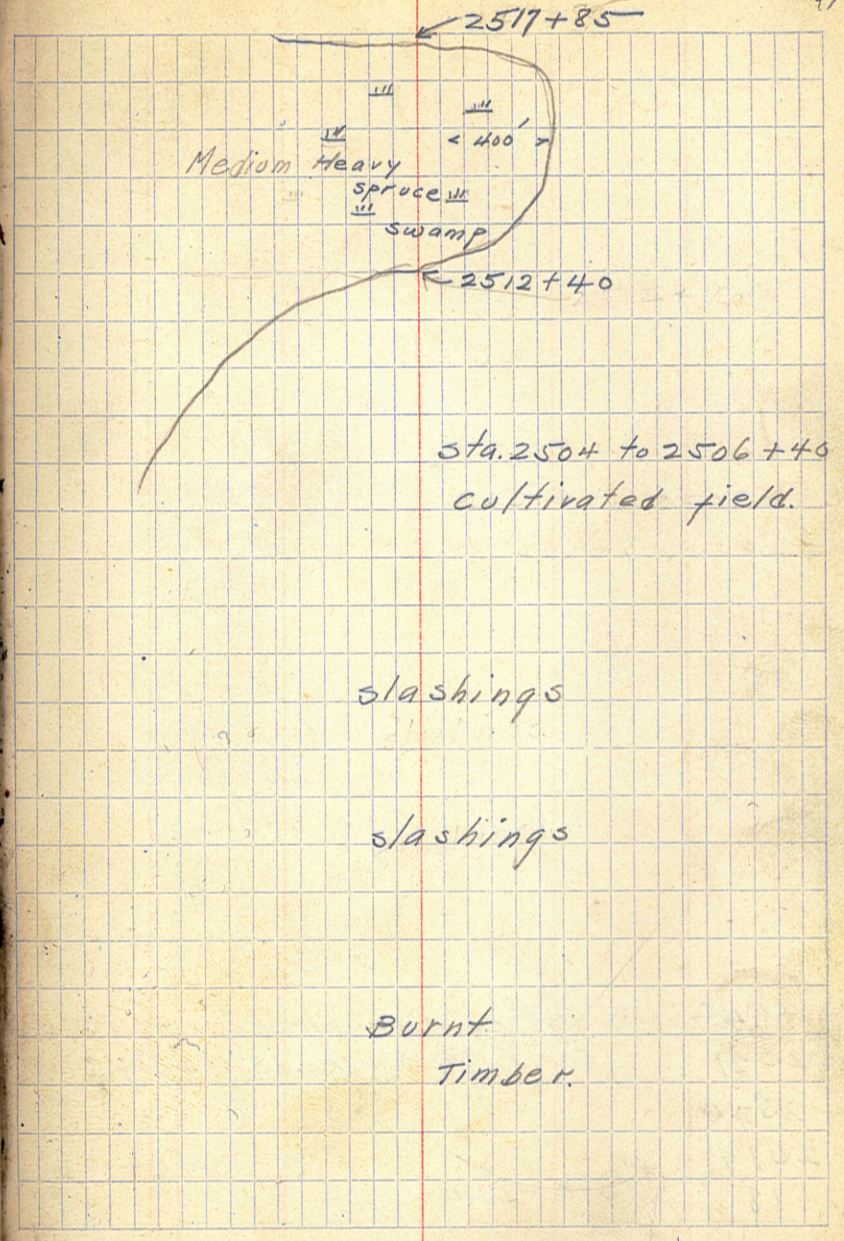 2517+85
< 400' >
Medium Heavy
spruce
swamp
2512+40
sta. 2504 to 2506+40
cultivated field.
slashings
slashings
Burnt
Timber.